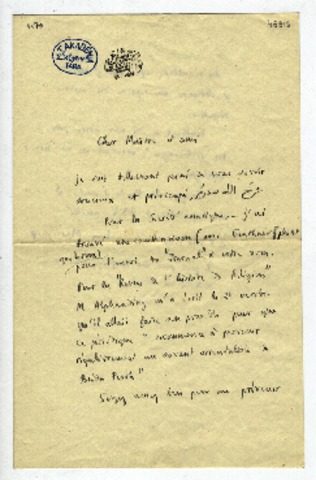 Cher Maître et ami
je suis tellement peiné de vous savoir
soucieux et préoccupé,
Pour la Société asiatique, j'ai
trouvé une combinaison (avec Geuthner)
pour l'envoi du "Journal" à votre nom.
Pour la "Revue de l'histoire des Religions"
M. Alphandéry m'a écrit le 21
qu'il allait faire son possible pour que
ce périodique "recommence à parvenir
régulièrement au savant orientaliste à
Buda Pesth"
Soyez assez bon pour me prévenir